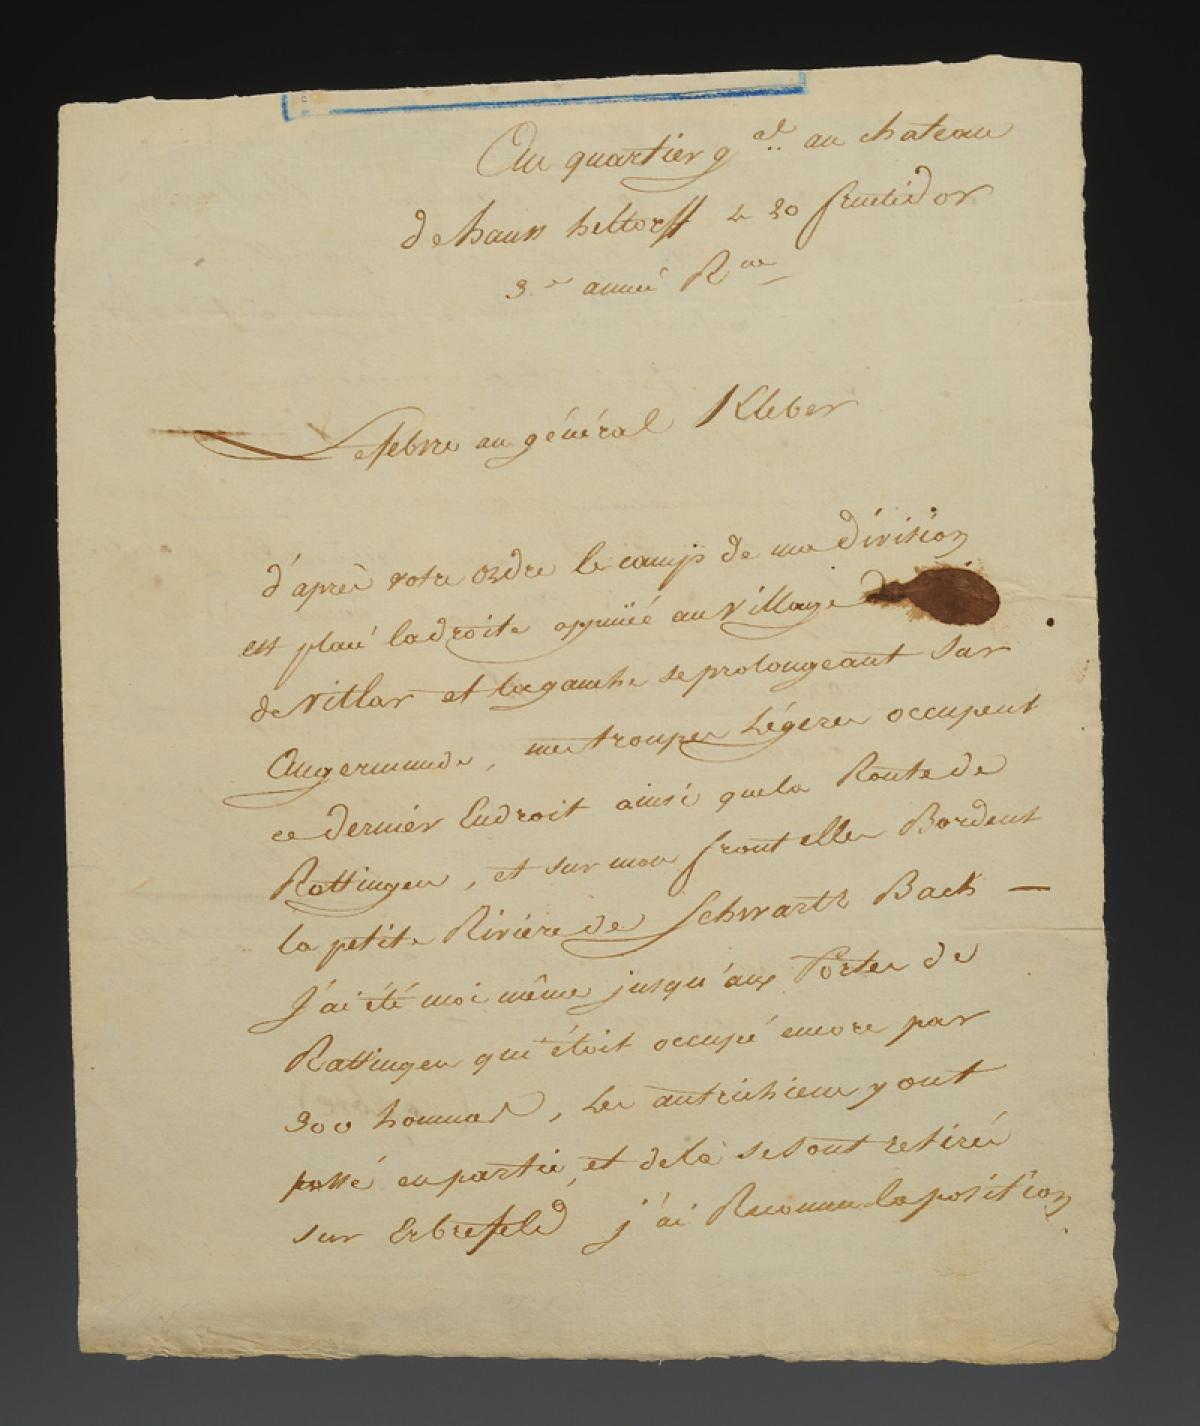 Au quartier g.al au chateau
de haun heltorff le 20 fructidor
3.e année R.ne
Lefebvre au général Kleber
d'après votre ordre le camp de ma division
est placé la droite appuiié au village d
de Vitlar et la gauche se prolongeant sur
Angermunde, mes troupes Légeres occupent
ce dernier Endroit ainsi que la Route de
Rattingen, et sur mon front elles Bordent
la petite Rivière de Schwartz Bach —
J'ai été moi même jusqu'aux Portes de
Rattingen qui étoit occupé encore par
300 hommes, Les autrichiens y ont
passé en partie, et de là se sont retirés
sur Erbrefeld j'ai Reconnu la position